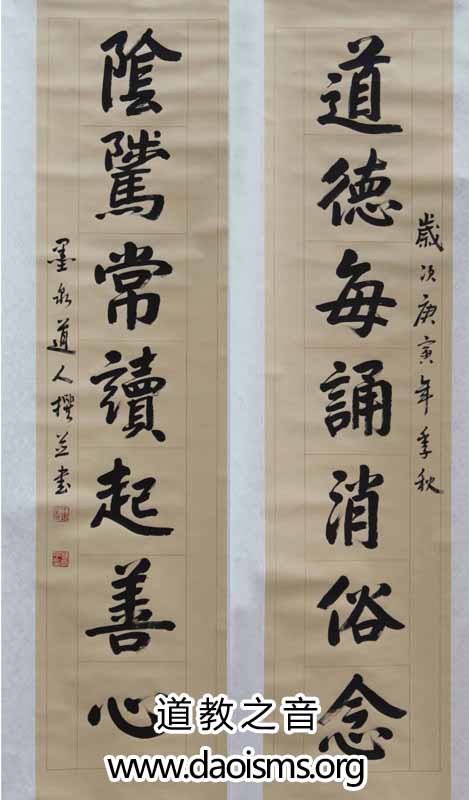 歲次庚寅年季秋
道德每誦消俗念
陰騭常讀起善心
墨泉道人撰并书
道教之音
www.daoisms.org